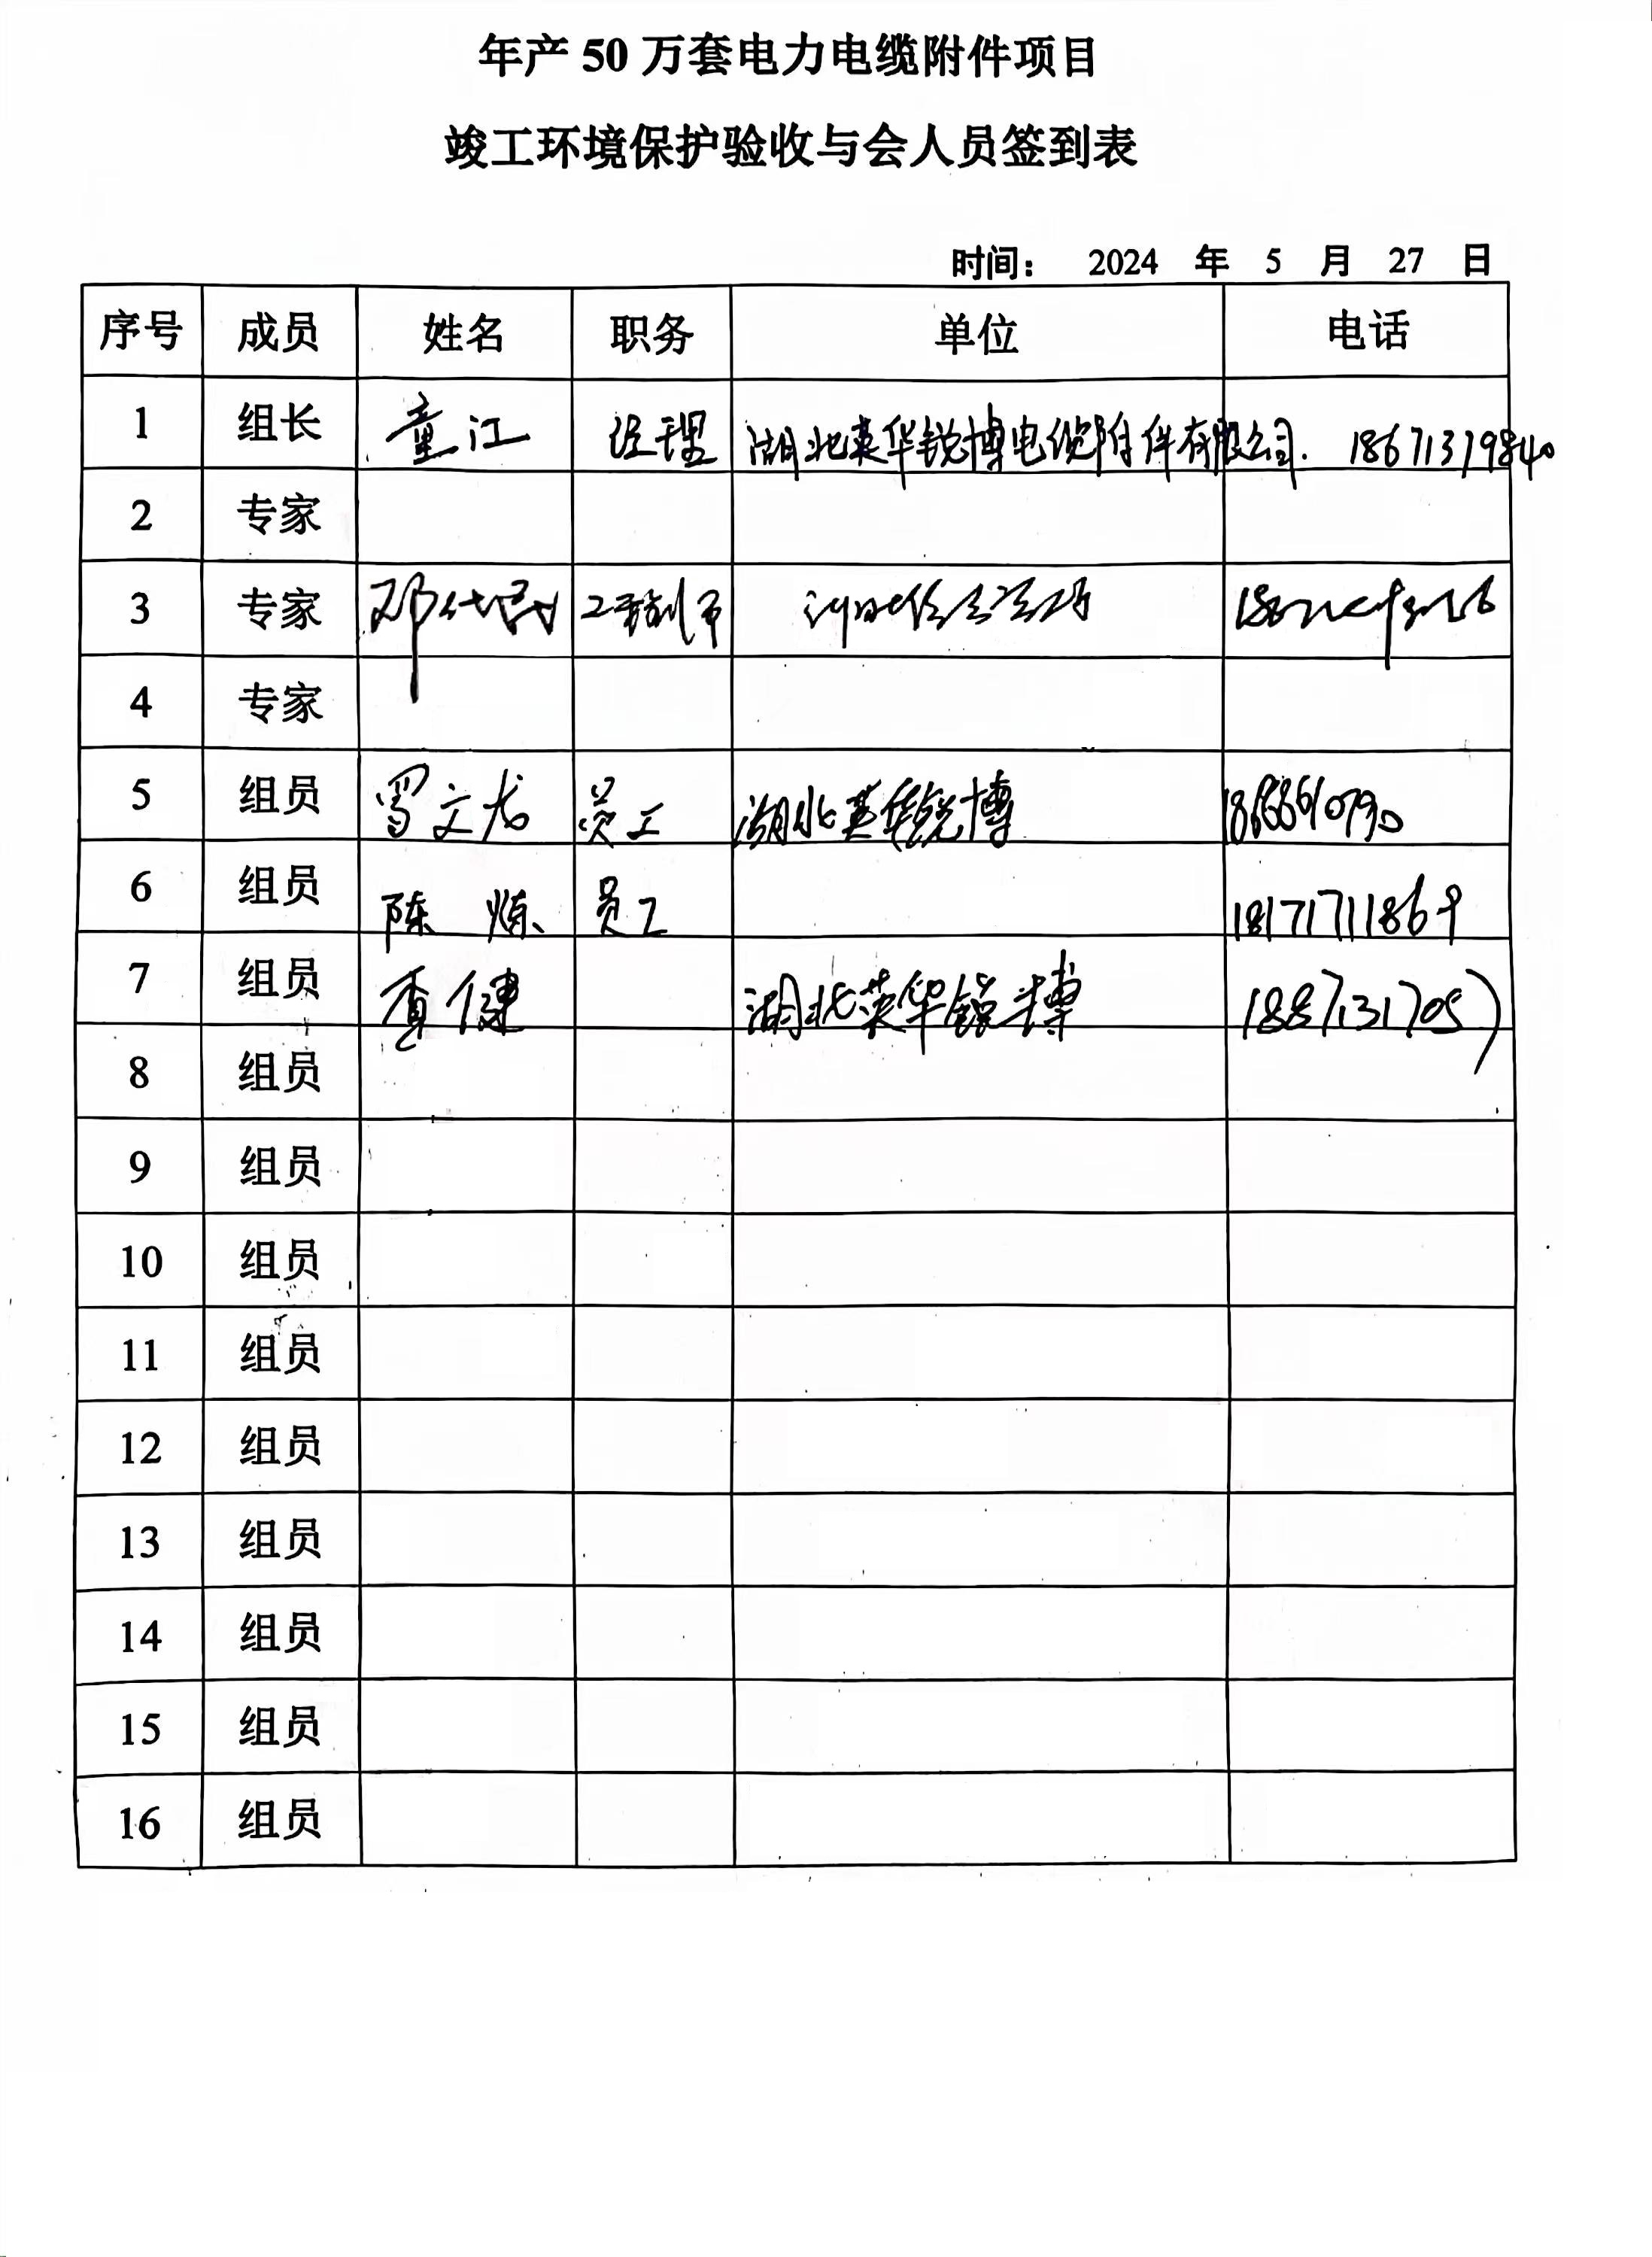 年产 50 万套电力电缆附件项目
竣工环境保护验收与会人员签到表
时间： 2024 年 5 月 27 日
序号 成员 姓名 职务 单位 电话
1 组长 童江 经理 湖北英华锐博电缆附件有限公司. 18671319840
2 专家
3 专家 邓
4 专家
5 组员 文龙 员工 湖北英华锐博
6 组员 陈炼 员工 18171711869
7 组员 查健 湖北英华锐博
8 组员
9 组员
10 组员
11 组员
12 组员
13 组员
14 组员
15 组员
16 组员